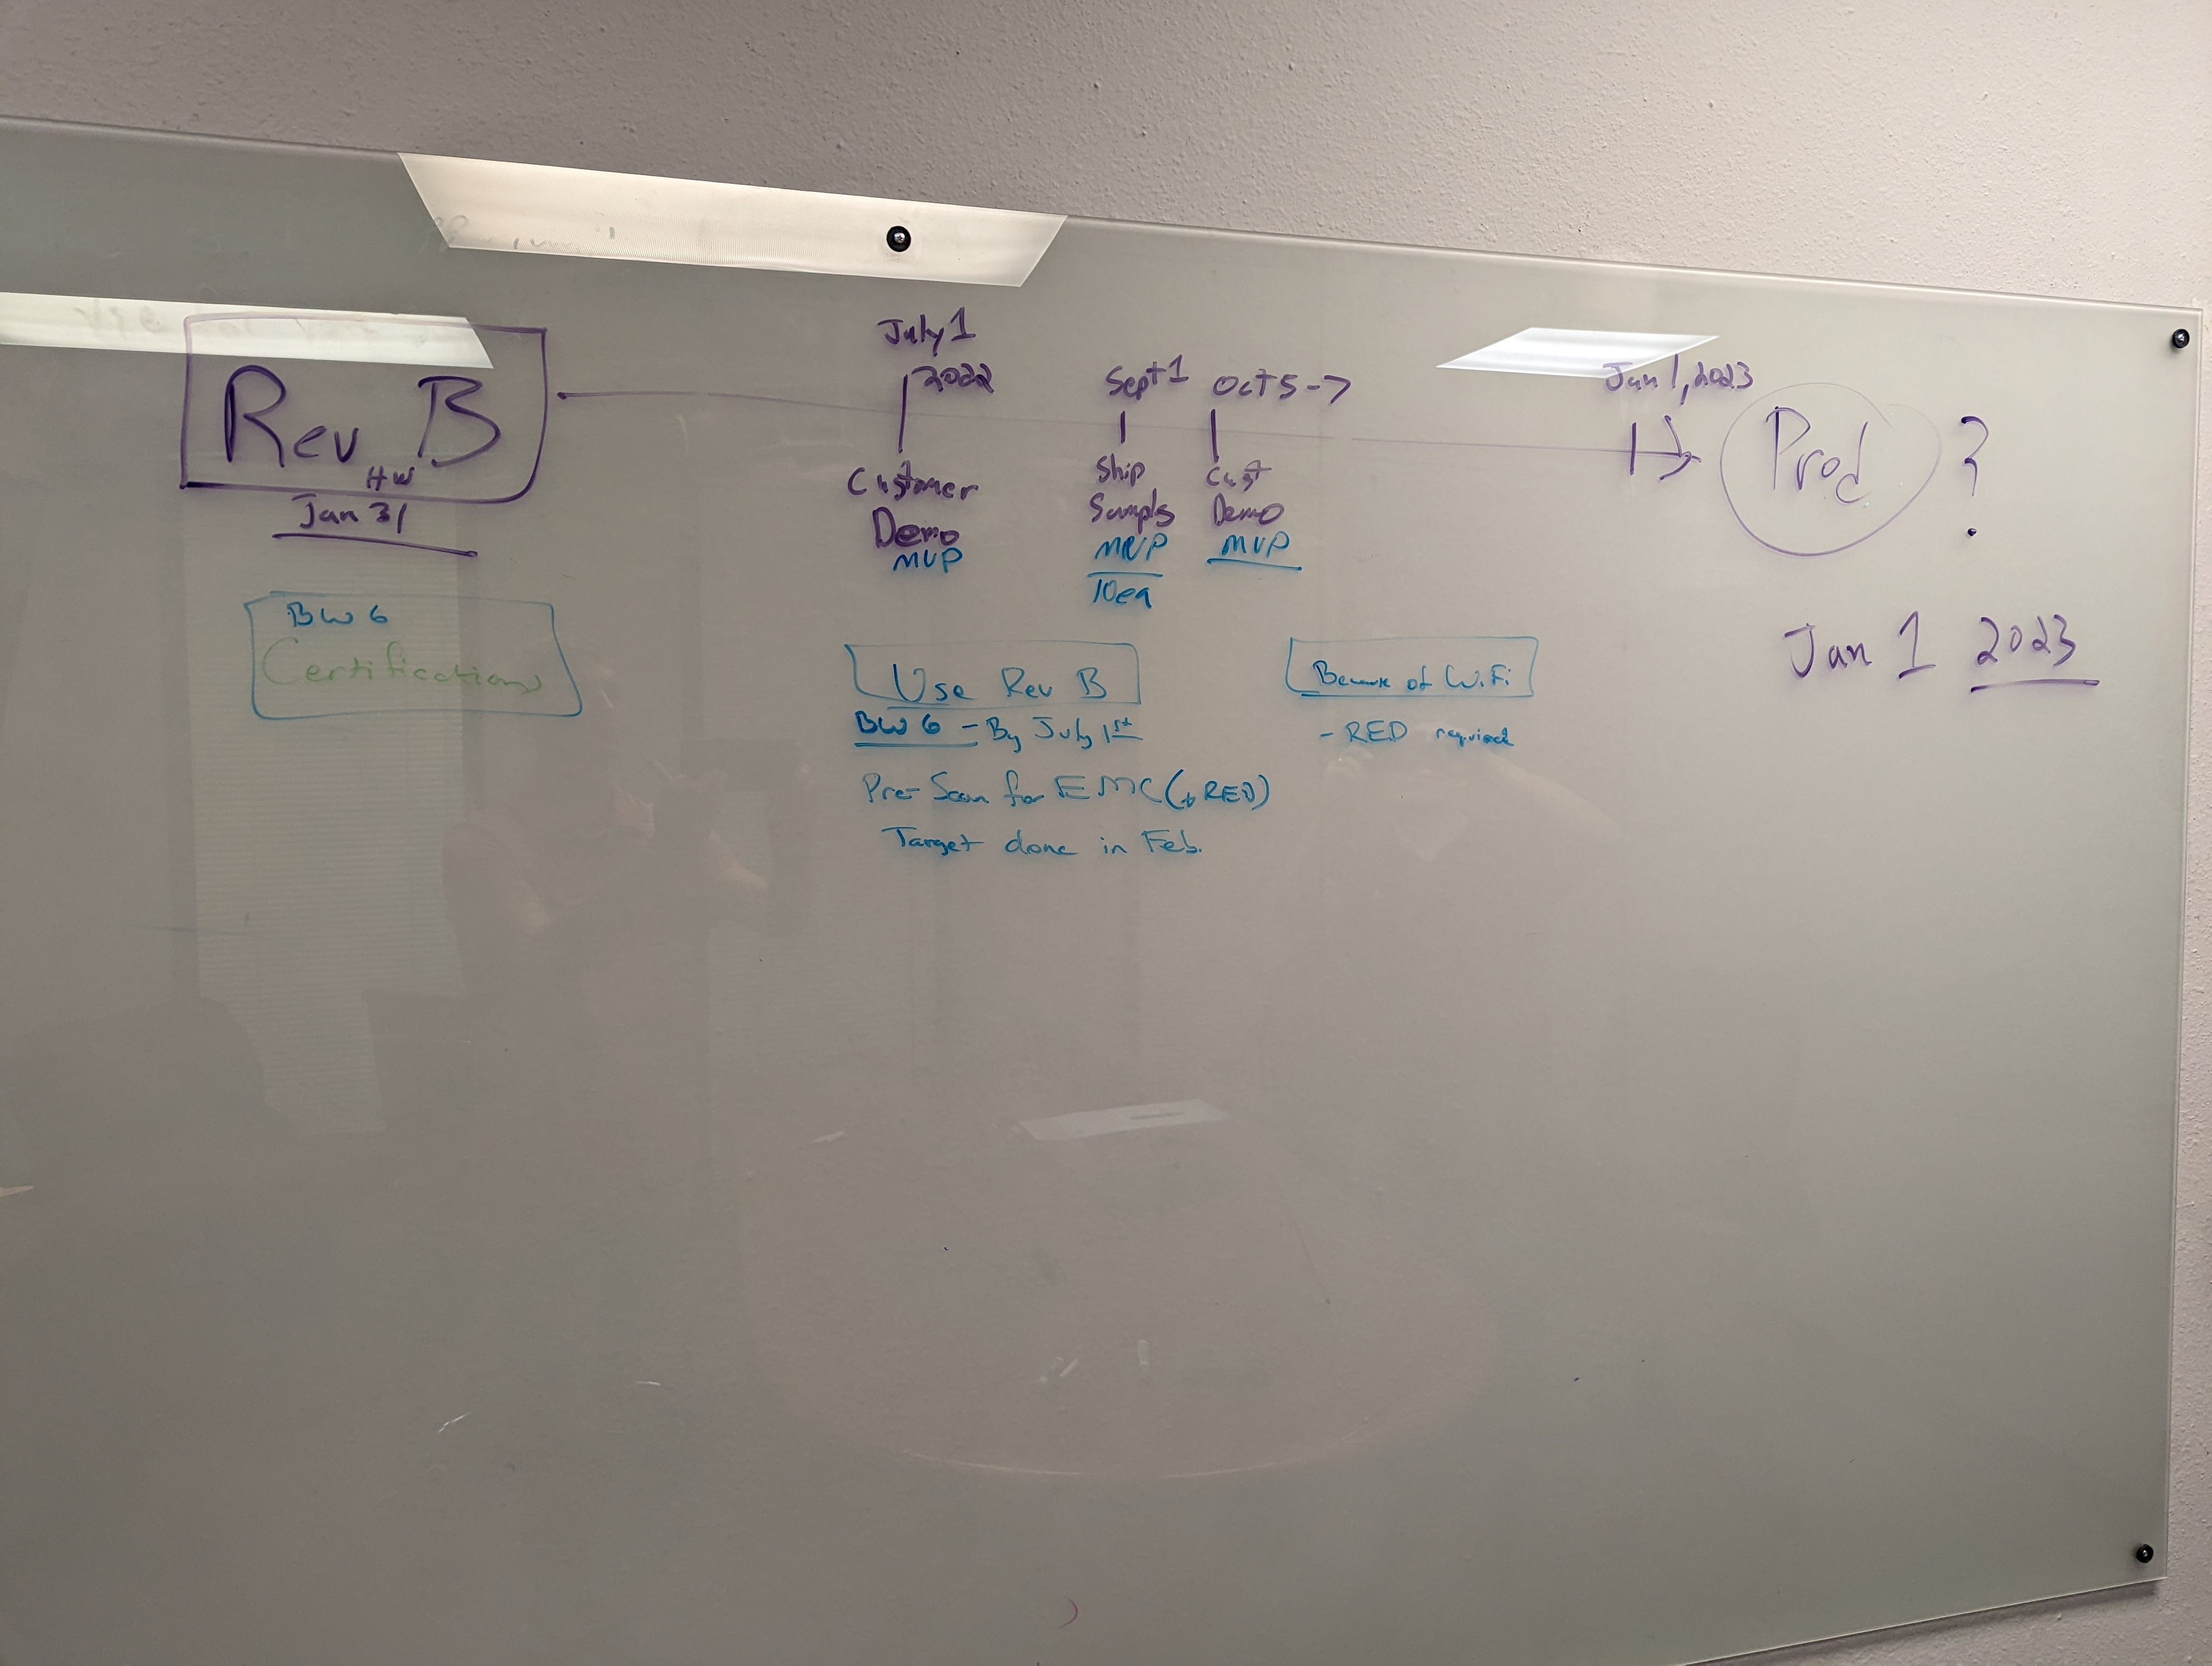 Rev B
HW
Jan 31
July 1
2022
Customer
Demo
MVP
Sept 1
Ship
Sampls
MVP
10ea
Oct 5-7
Cust
Demo
MVP
Jan 1, 2023
Prod ?
Jan 1 2023
BW 6
Certifications
Use Rev B
BW 6 - By July 1st
Pre-Scan for EMC (+ RED)
Target done in Feb.
Beware of WiFi
- RED required